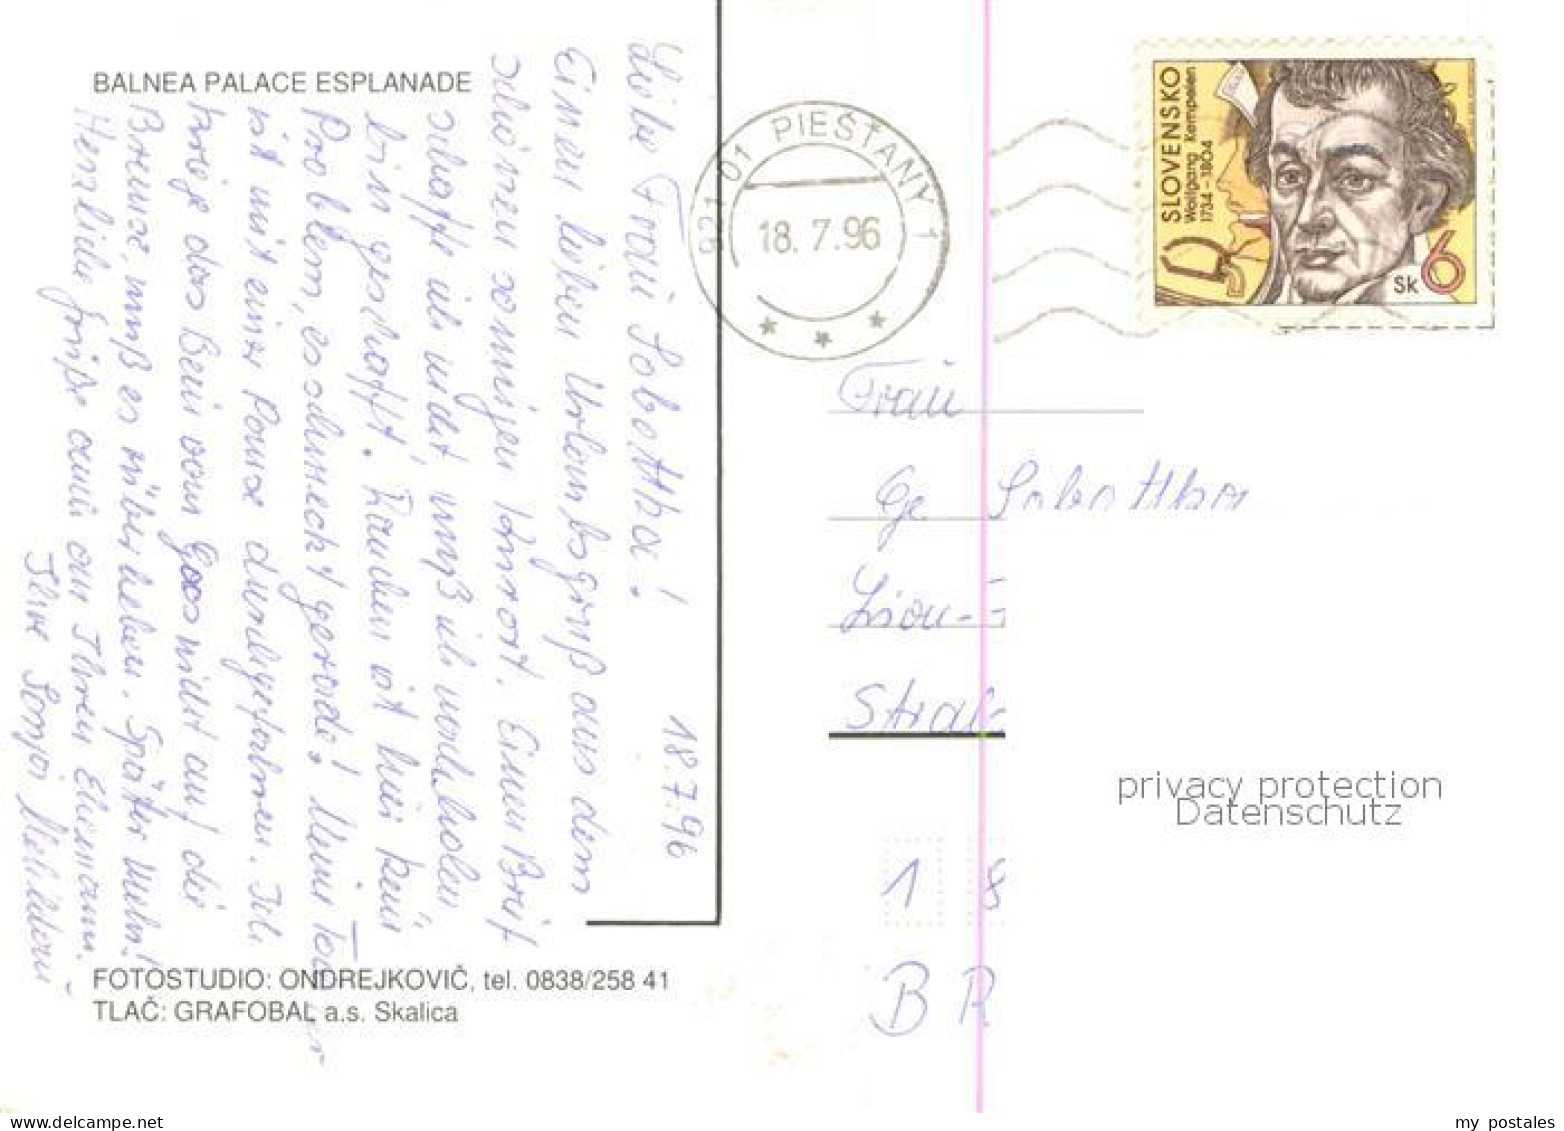 BALNEA PALACE ESPLANADE
18.7.96
Liebe Frau Sobottka!
Einen lieben Urlaubsgruß aus dem
schönen sonnigen Kurort. Einen Brief
schaffe ich nicht muß ich nachholen
bin geschafft. Rauchen ist hier kein
Problem, es schmeckt gerade! Mein Tower
ist mit einer Pause durchgefahren. Ich
kriege das Bein vom Gas nicht auf die
Bremse, muß es rüber heben. Später mehr!
Herzliche Grüße auch an Ihren Ehemann.
Ihre Sonja
FOTOSTUDIO: ONDREJKOVIČ, tel. 0838/258 41
TLAČ: GRAFOBAL a.s. Skalica
921 01 PIEŠŤANY 1
18.7.96
SLOVENSKO
Wolfgang Kempelen
1734 - 1804
Sk 6
Frau
Ge Sobottka
Lion-
Stral
1 8
B R
privacy protection
Datenschutz
my postales